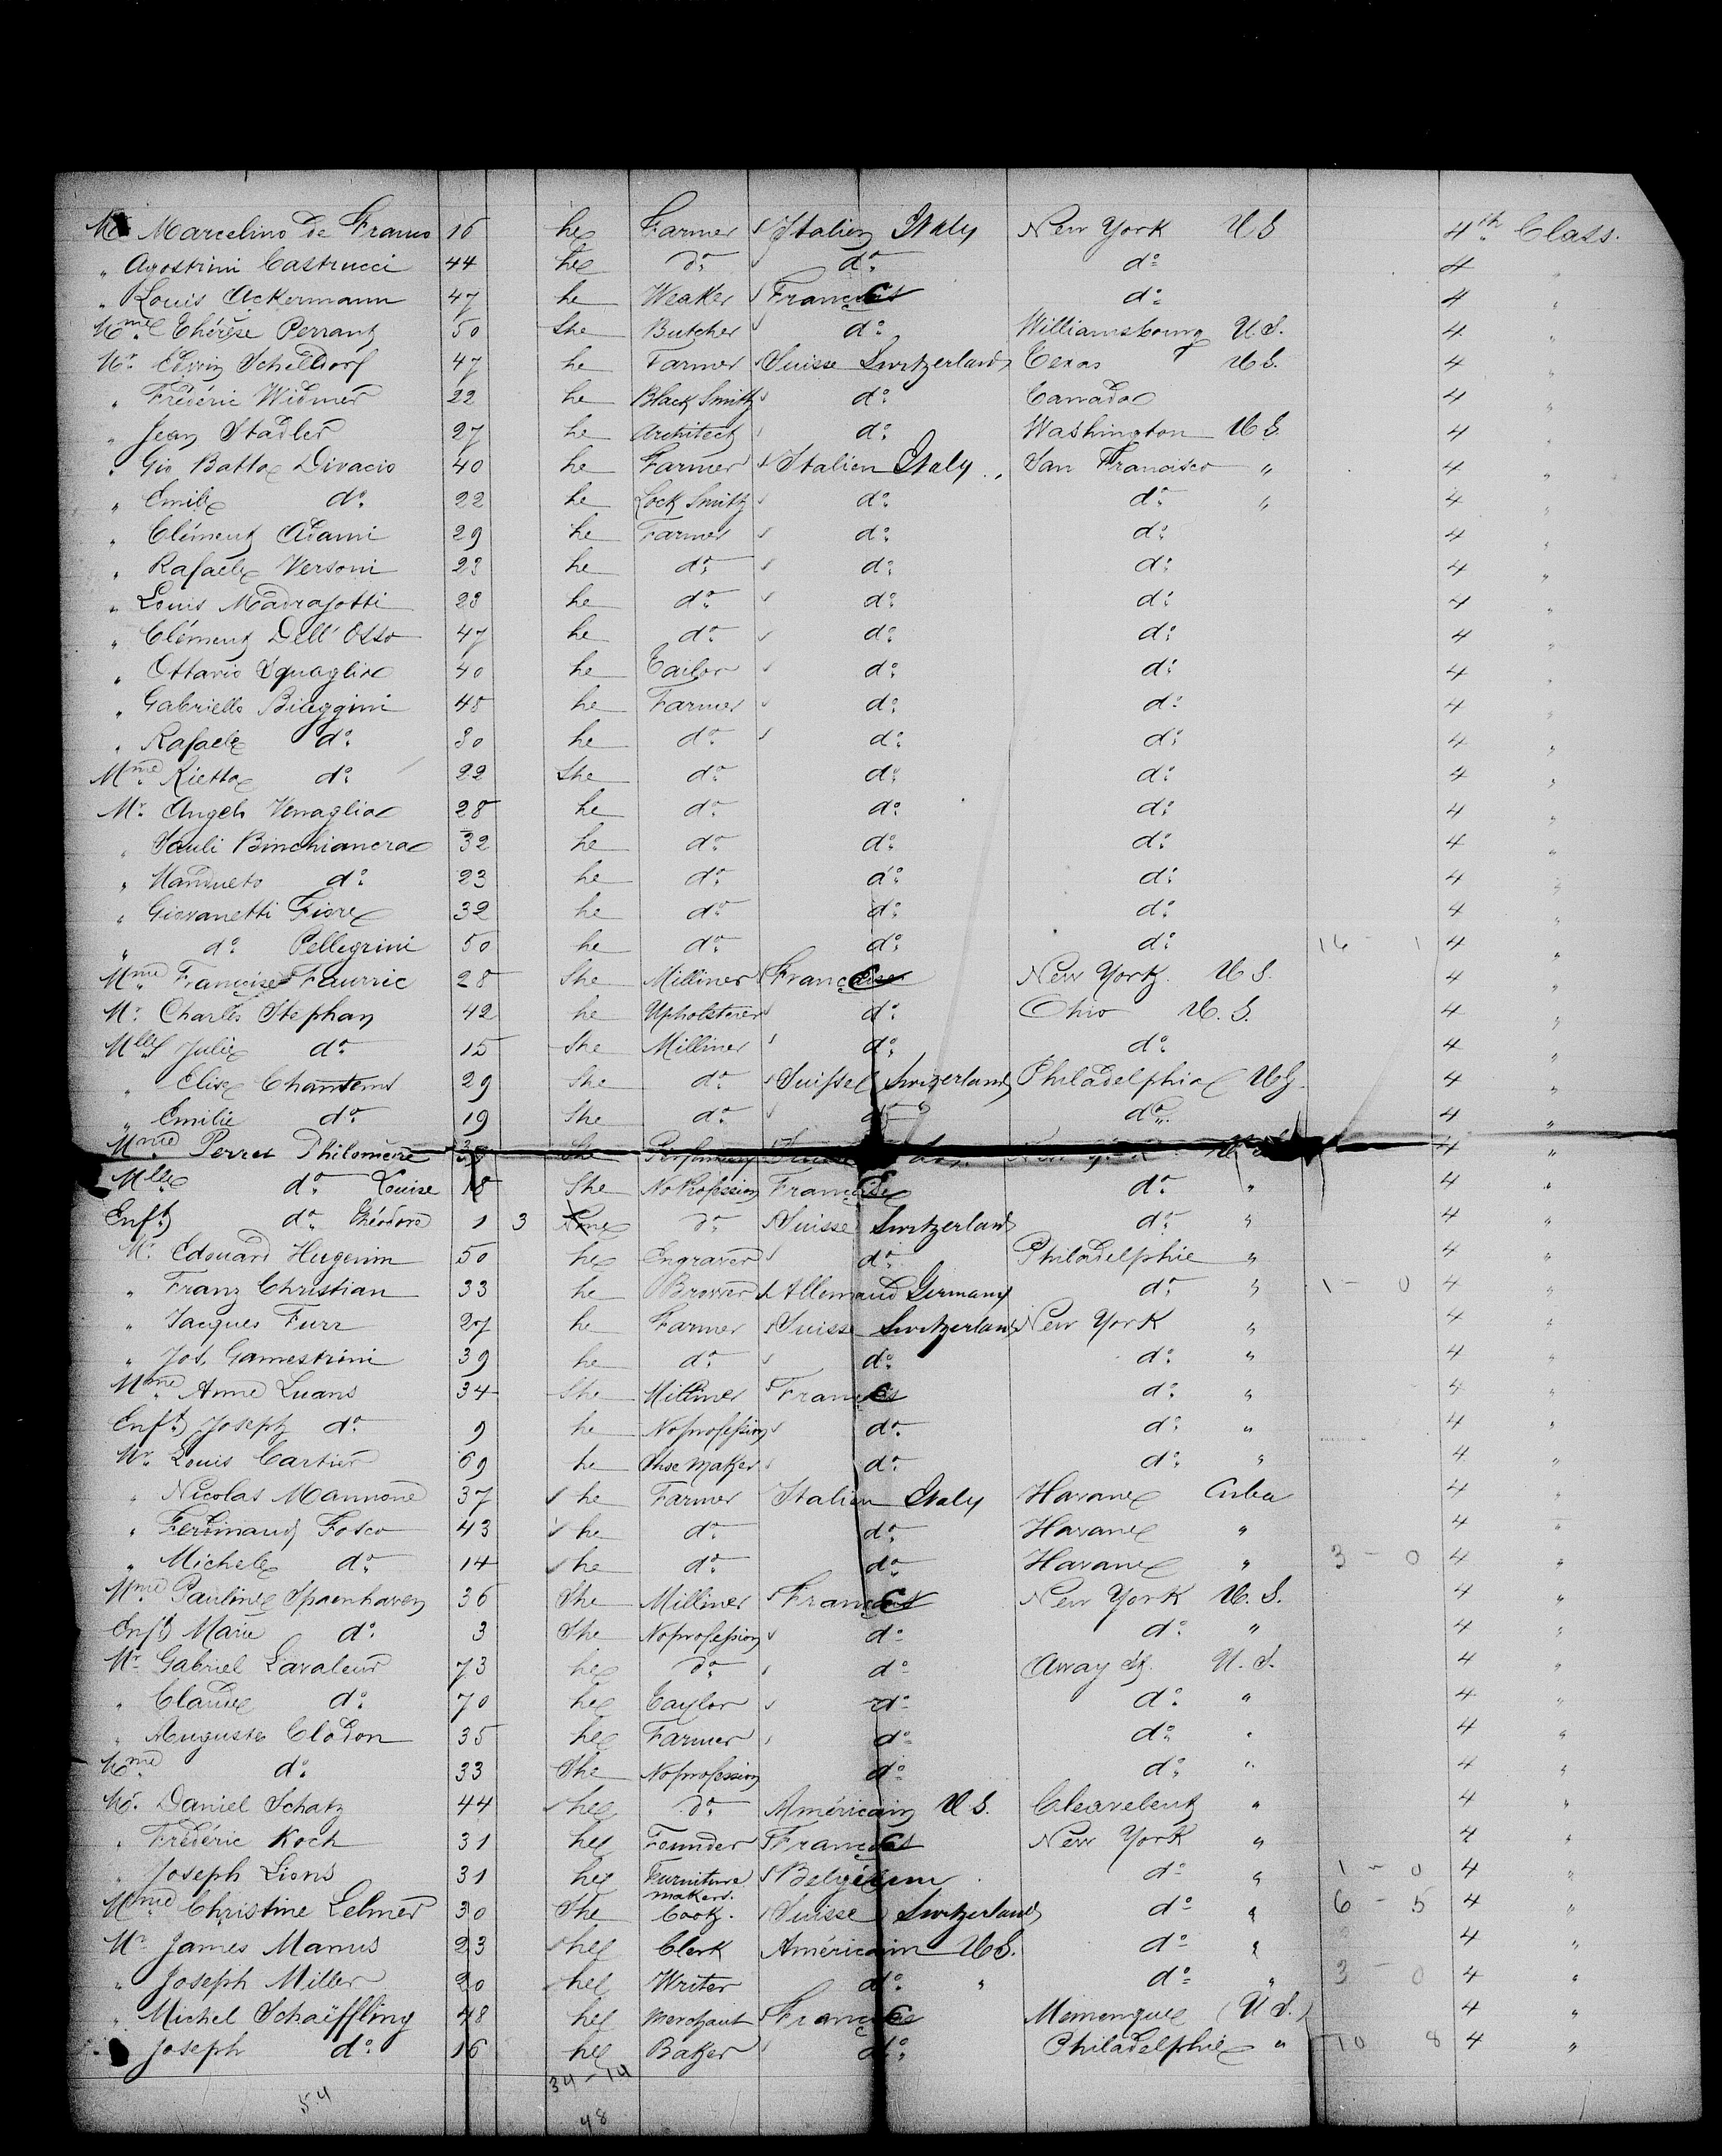 Mr Marcelino de Franco 16 he Farmer Italien Italy New York U S 4th Class.
" Agostrini Castrucci 44 he do do do 4 "
" Louis Ackermann 47 he Weaker France do 4 "
Mme Thérèse Perrant 50 She Butcher do Williamsbourg U.S. 4 "
Mr Edwin Scheldorf 47 he Farmer Suisse Switzerland Texas U S. 4 "
" Fréderic Widmer 22 he Black Smith do Canada 4 "
" Jean Stadler 27 he Architect do Washington U S. 4 "
" Gio Batta Divacio 40 he Farmer Italien Italy San Francisco " 4 "
" Emile do 22 he Lock Smith do do " 4 "
" Clément Adami 29 he Farmer do do 4 "
" Rafaele Versoni 23 he do do do 4 "
" Louis Madrasotti 23 he do do do 4 "
" Clément Dell' Osso 47 he do do do 4 "
" Ottavio Squaglia 40 he Tailor do do 4 "
" Gabriello Biaggini 45 he Farmer do do 4 "
" Rafaele do 30 he do do do 4 "
Mme Rietta do 22 She do do do 4 "
Mr Angelo Venaglia 28 he do do do 4 "
" Pauli Binchiancra 32 he do do do 4 "
" Mandueto do 23 he do do do 4 "
" Giovanetti Fiore 32 he do do do 4 "
" do Pellegrini 50 he do do do 16 - 1 4 "
Mme Françoise Faurric 28 She Milliner France New York U S. 4 "
Mr Charles Stephan 42 he Upholsterer do Ohio U. S. 4 "
Mlle Julie do 15 She Milliner do do 4 "
" Elise Chantems 29 She do Suisse Switzerland Philadelphia U S. 4 "
" Emilie do 19 She do do do 4 "
Mme Perret Philomène She 4 "
Mlle do Louise 18 She No Profession France do " 4 "
Enft do Théodore 1 3 do Suisse Switzerland do " 4 "
Mr Edouard Hugenin 50 he Engraver do Philadelphie " 4 "
" Franz Christian 33 he Brower Allemand Germany do " 1 - 0 4 "
" Jacques Furr 27 he Farmer Suisse Switzerland New York " 4 "
" Jos. Gamestrini 39 he do do do " 4 "
Mme Anne Luans 34 She Milliner France do " 4 "
Enft Joseph do 9 he No profession do do " 4 "
Mr Louis Cartier 69 he Shoe Maker do do " 4 "
" Nicolas Mannone 37 he Farmer Italien Italy Havane Cuba 4 "
" Ferdinand Fosco 43 he do do Havane " 4 "
" Michele do 14 he do do Havane " 3 - 0 4 "
Mme Pauline Spoenhaven 36 She Milliner France New York U. S. 4 "
Enft Marie do 3 She No profession do do " 4 "
Mr Gabriel Lavaleur 73 he do do U. S. 4 "
" Claude do 70 he Taylor do do " 4 "
" Auguste Clodon 35 he Farmer do do " 4 "
Mme do 33 She No profession do do " 4 "
Mr. Daniel Schatz 44 he do Américain U. S. Cleavelent " 4 "
" Fréderic Koch 31 he Founder France New York " 4 "
" Joseph Lions 31 he Furniture makers. Belgium do " 1 - 0 4 "
Mme Christine Lelmer 30 She Cook. Suisse Switzerland do " 6 - 5 4 "
Mr James Manus 23 he Clerk Américain U S. do " 4 "
" Joseph Miller 20 he Writer do " do " 3 - 0 4 "
" Michel Schaëffling 48 he Merchant France (U S.) 4 "
" Joseph do 16 he Baker do Philadelphie " 10 8 4 "
34 - 14
54
48